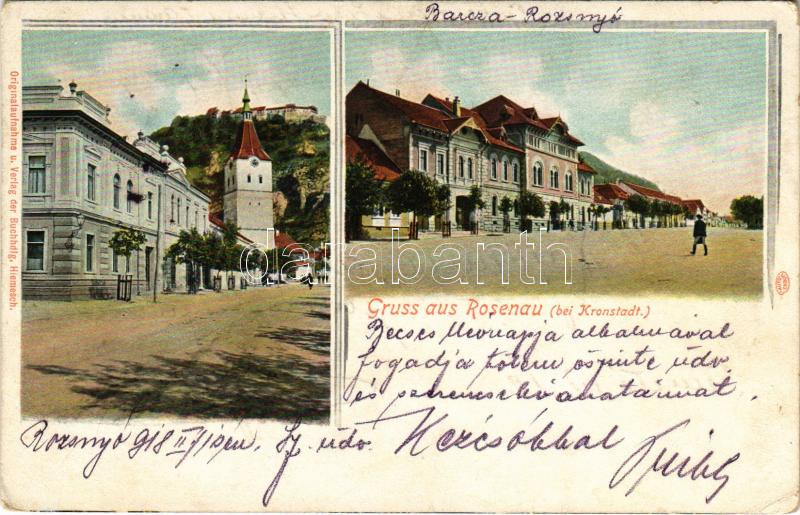 Barcza-Rozsnyó
Originalaufnahme u. Verlag der Buchhdlg. Hiemesch.
darabanth
Gruss aus Rosenau (bei Kronstadt.)
Becses névnapja alkalmával
fogadja tőlem őszinte üdv
és szerencsekívánataimat.
Rozsnyó 918 II/
Sz. üdv. Kézcsókkal